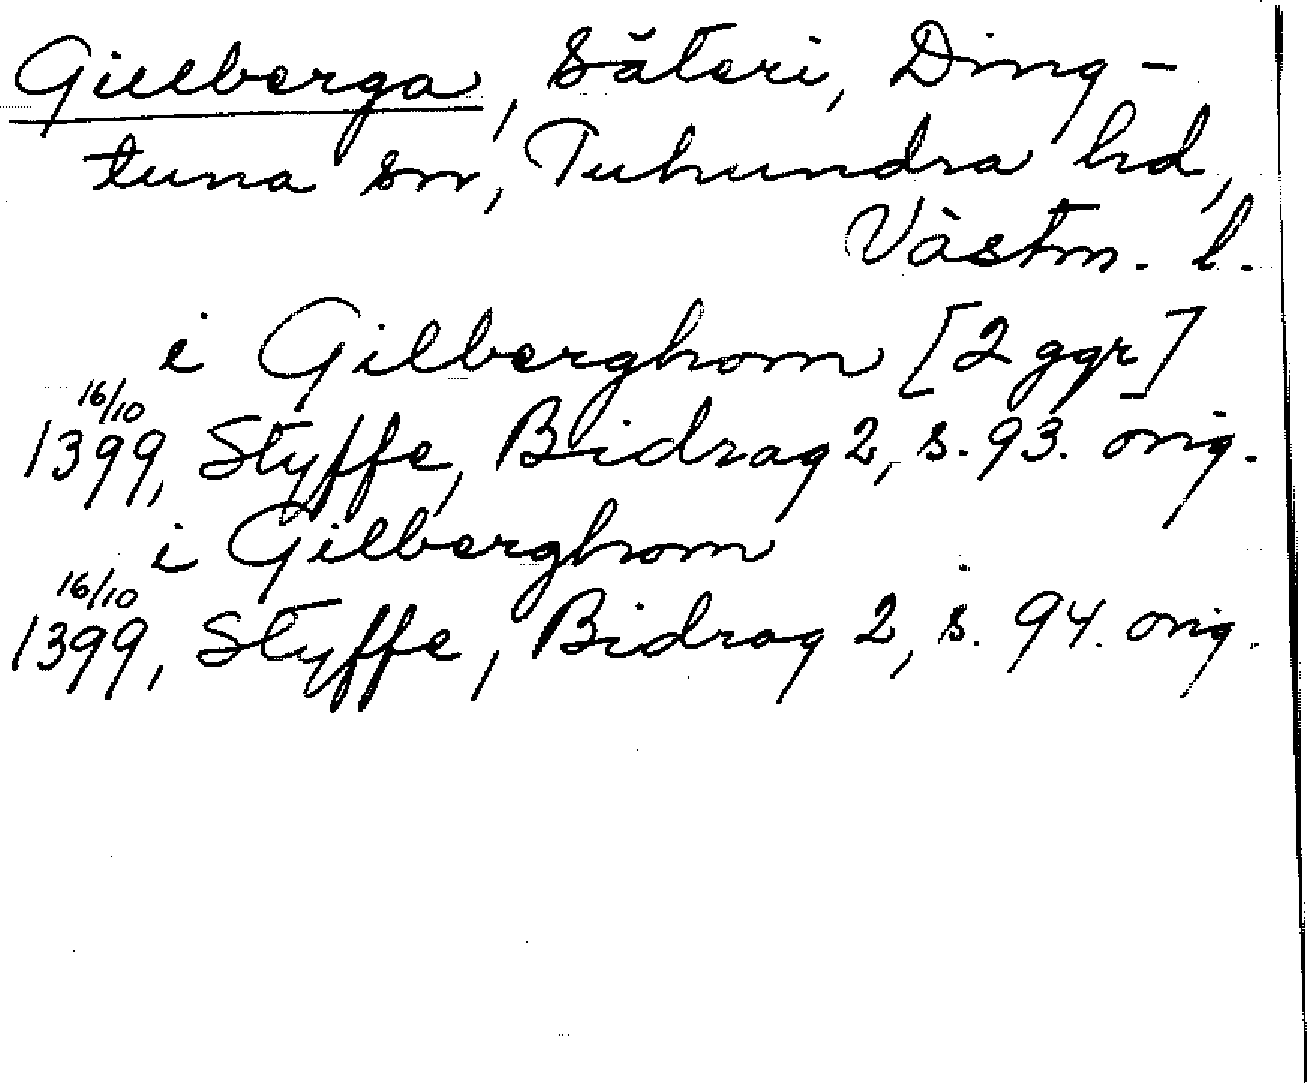 Gillberga, Säteri, Ding-
tuna sn, Tuhundra hd,
Västm. l.
i Gilberghom [2 ggr]
16/10
1399, Styffe, Bidrag 2, s. 93. orig.
i Gilberghom
16/10
1399, Styffe, Bidrag 2, s. 94. orig.